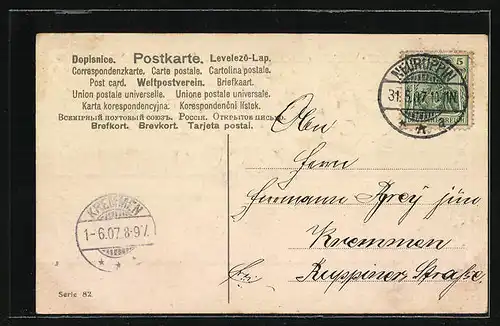 Dopisnice. Postkarte. Levelező-Lap.
Correspondenzkarte. Carte postale. Cartolina postale.
Post card. Weltpostverein. Briefkaart.
Union postale universelle. Unione postale universale.
Karta korespondencyjna. Korespondenčni listek.
Всемірный почтовый союзъ. Россія. Открытое письмо.
Brefkort. Brevkort. Tarjeta postal.
5
NEURUPPIN
31.5.07
Herrn
Hermann Grey jün
Kremmen
Ruppiner Straße.
KREMMEN
1-6.07.8-9V.
Serie 82